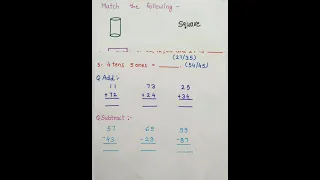 Match the following:-
Square
(27/35)
3. 4 tens 5 ones = ______. (54/45)
Q Add:-
11 73 25
+12 +24 +34
Q Subtract:-
57 65 99
-43 -23 -87